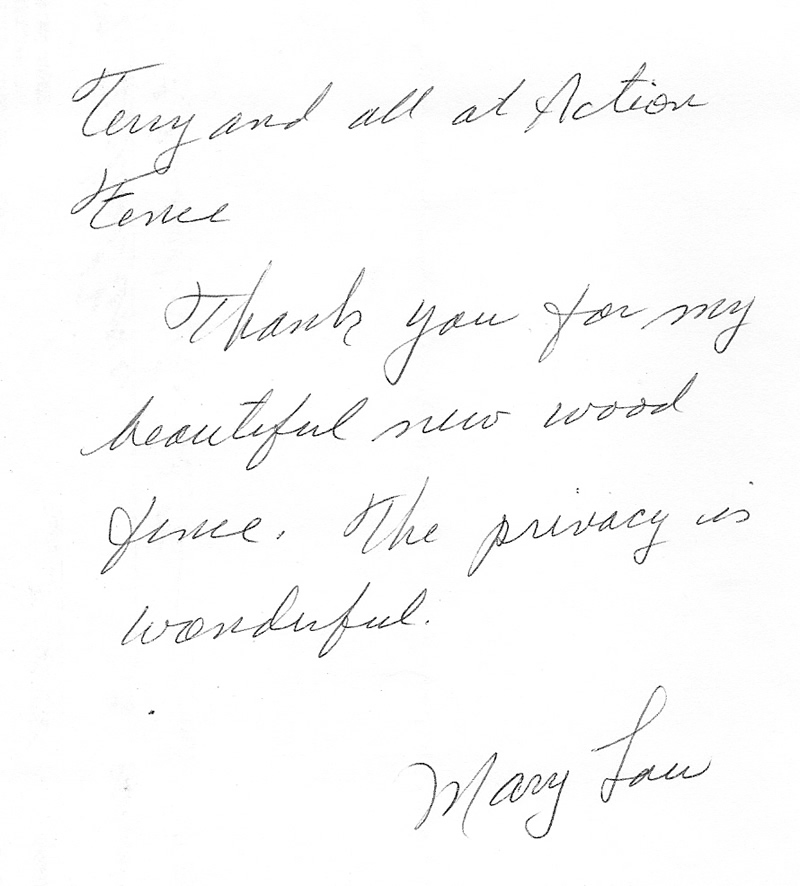 Terry and all at Action
Fence
Thank you for my
beautiful new wood
fence. The privacy is
wonderful.
Mary Lou